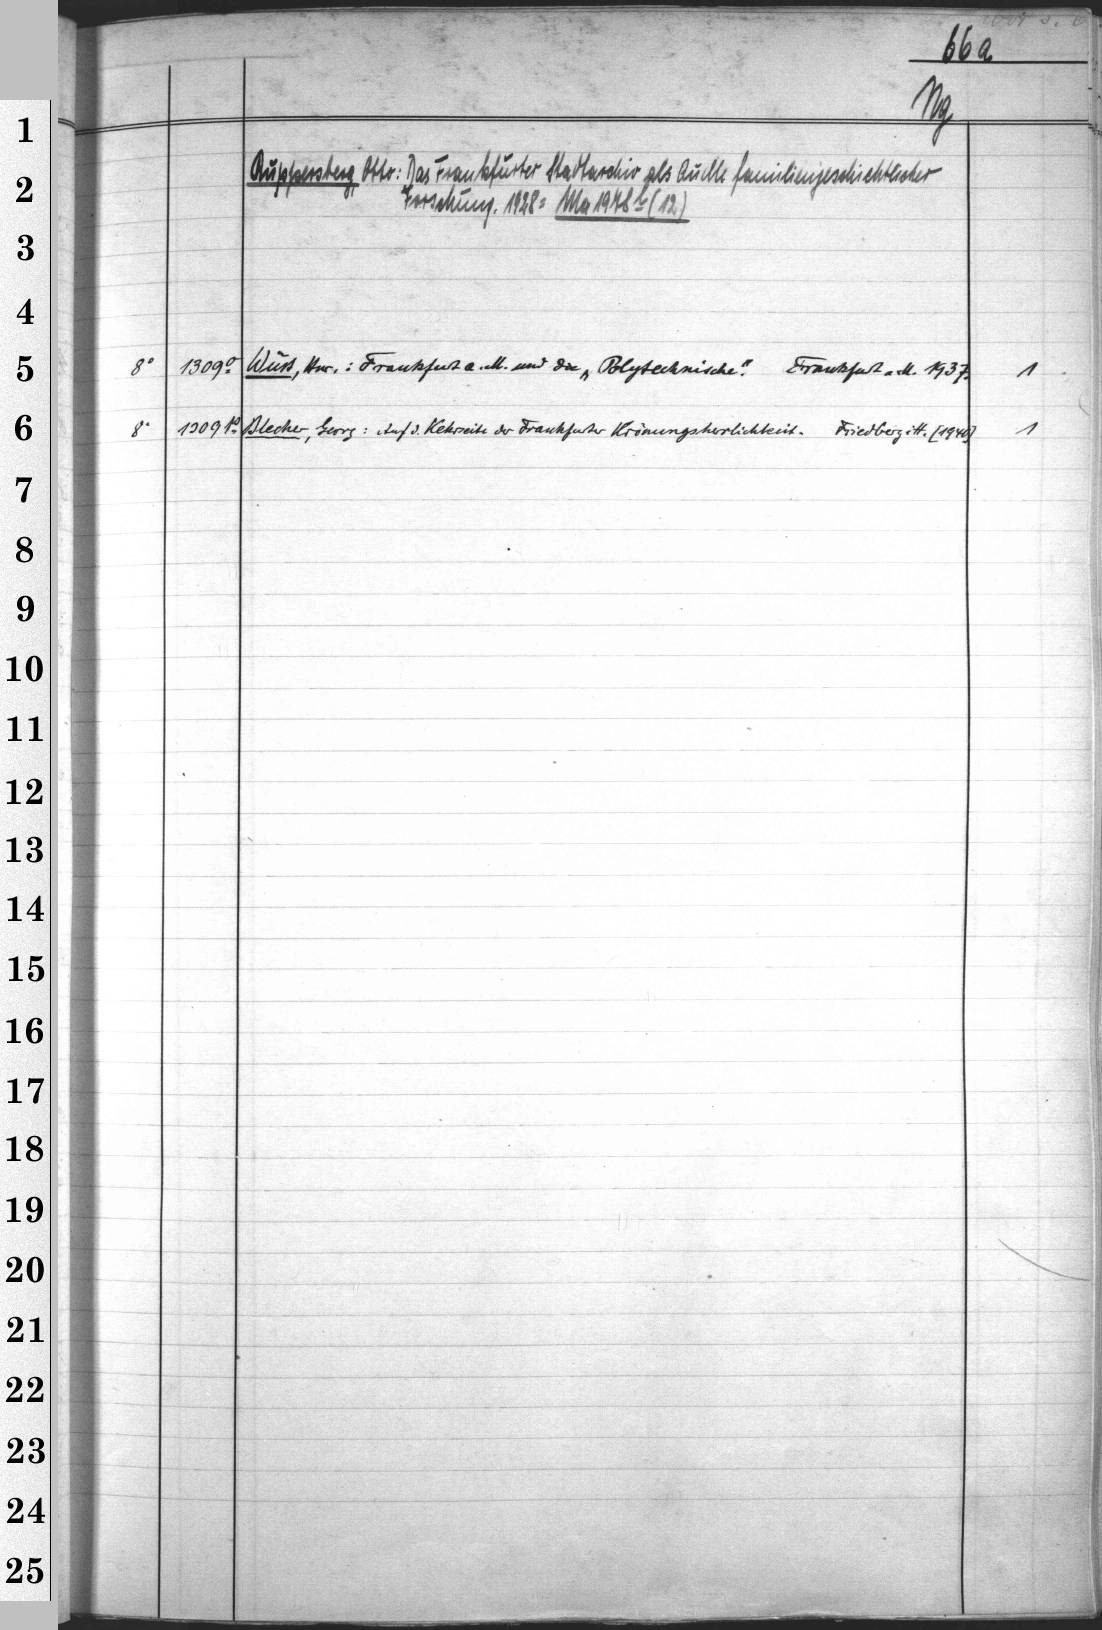 66a
Ng
1
2
3
4
5
6
7
8
9
10
11
12
13
14
15
16
17
18
19
20
21
22
23
24
25
Ruppersberg Otto: Das Frankfurter Stadtarchiv als Quelle familiengeschichtlicher
Forschung. 1928 = (12)
8° 1309 Wüst, : Frankfurt a. M. und die „Polytechnische". Frankfurt a. M. 1937. 1
8° 1309 Blecher, Georg: Auf d. Kehrseite der Frankfurter Krönungsherrlichkeit. Friedberg i. H. [1940] 1